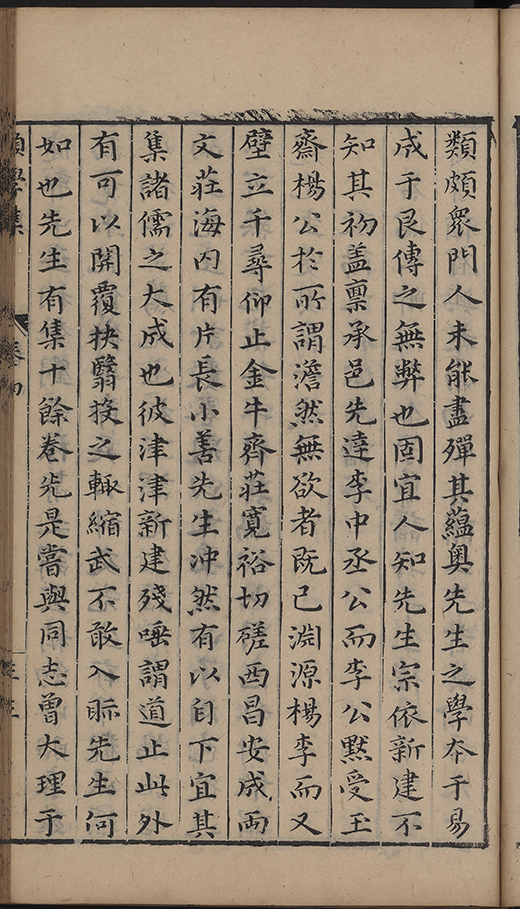 類頗衆門人未能盡殫其蘊奥先生之學夲于易
成于艮傳之無弊也固宜人知先生宗依新建不
知其初盖禀承邑先達李中丞公而李公黙受玉
齋楊公於所謂澹然無欲者既已淵源楊李而又
壁立千尋仰止金牛齊莊寛裕切磋西昌安成兩
文莊海内有片長小善先生冲然有以自下宜其
集諸儒之大成也彼津津新建殘唾謂道止此外
有可以開覆抉翳投之輙縮武不敢入眎先生何
如也先生有集十餘卷先是嘗與同志曾大理于
學集
卷